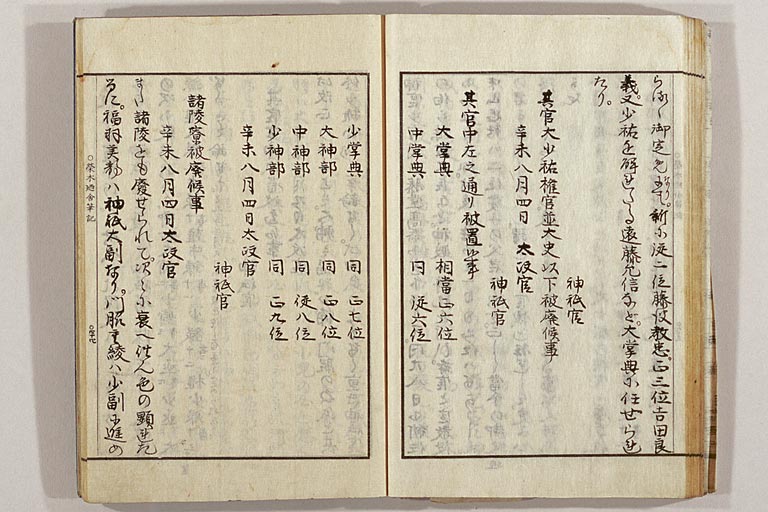 御定も 新に従二位藤波教忠。正三位吉田良
義。又少祐を解せられたる遠藤允信など。大掌典に任せられ
たり。
神祇官
其官大少祐権官並大史以下被廃候事
辛未八月四日 太政官
神祇官
其官中左之通リ被置候事
大掌典 相当正六位
中掌典 同 従六位
少掌典 同 正七位
大神部 同 正八位
中神部 同 従八位
少神部 同 正九位
辛未八月四日 太政官
神祇官
諸陵寮被廃候事
辛未八月四日 太政官
また諸陵をも廃せられて。次々に衰へ供ん色の顕
福羽美静ハ神祇大副なり。門脇重綾ハ少副に進め